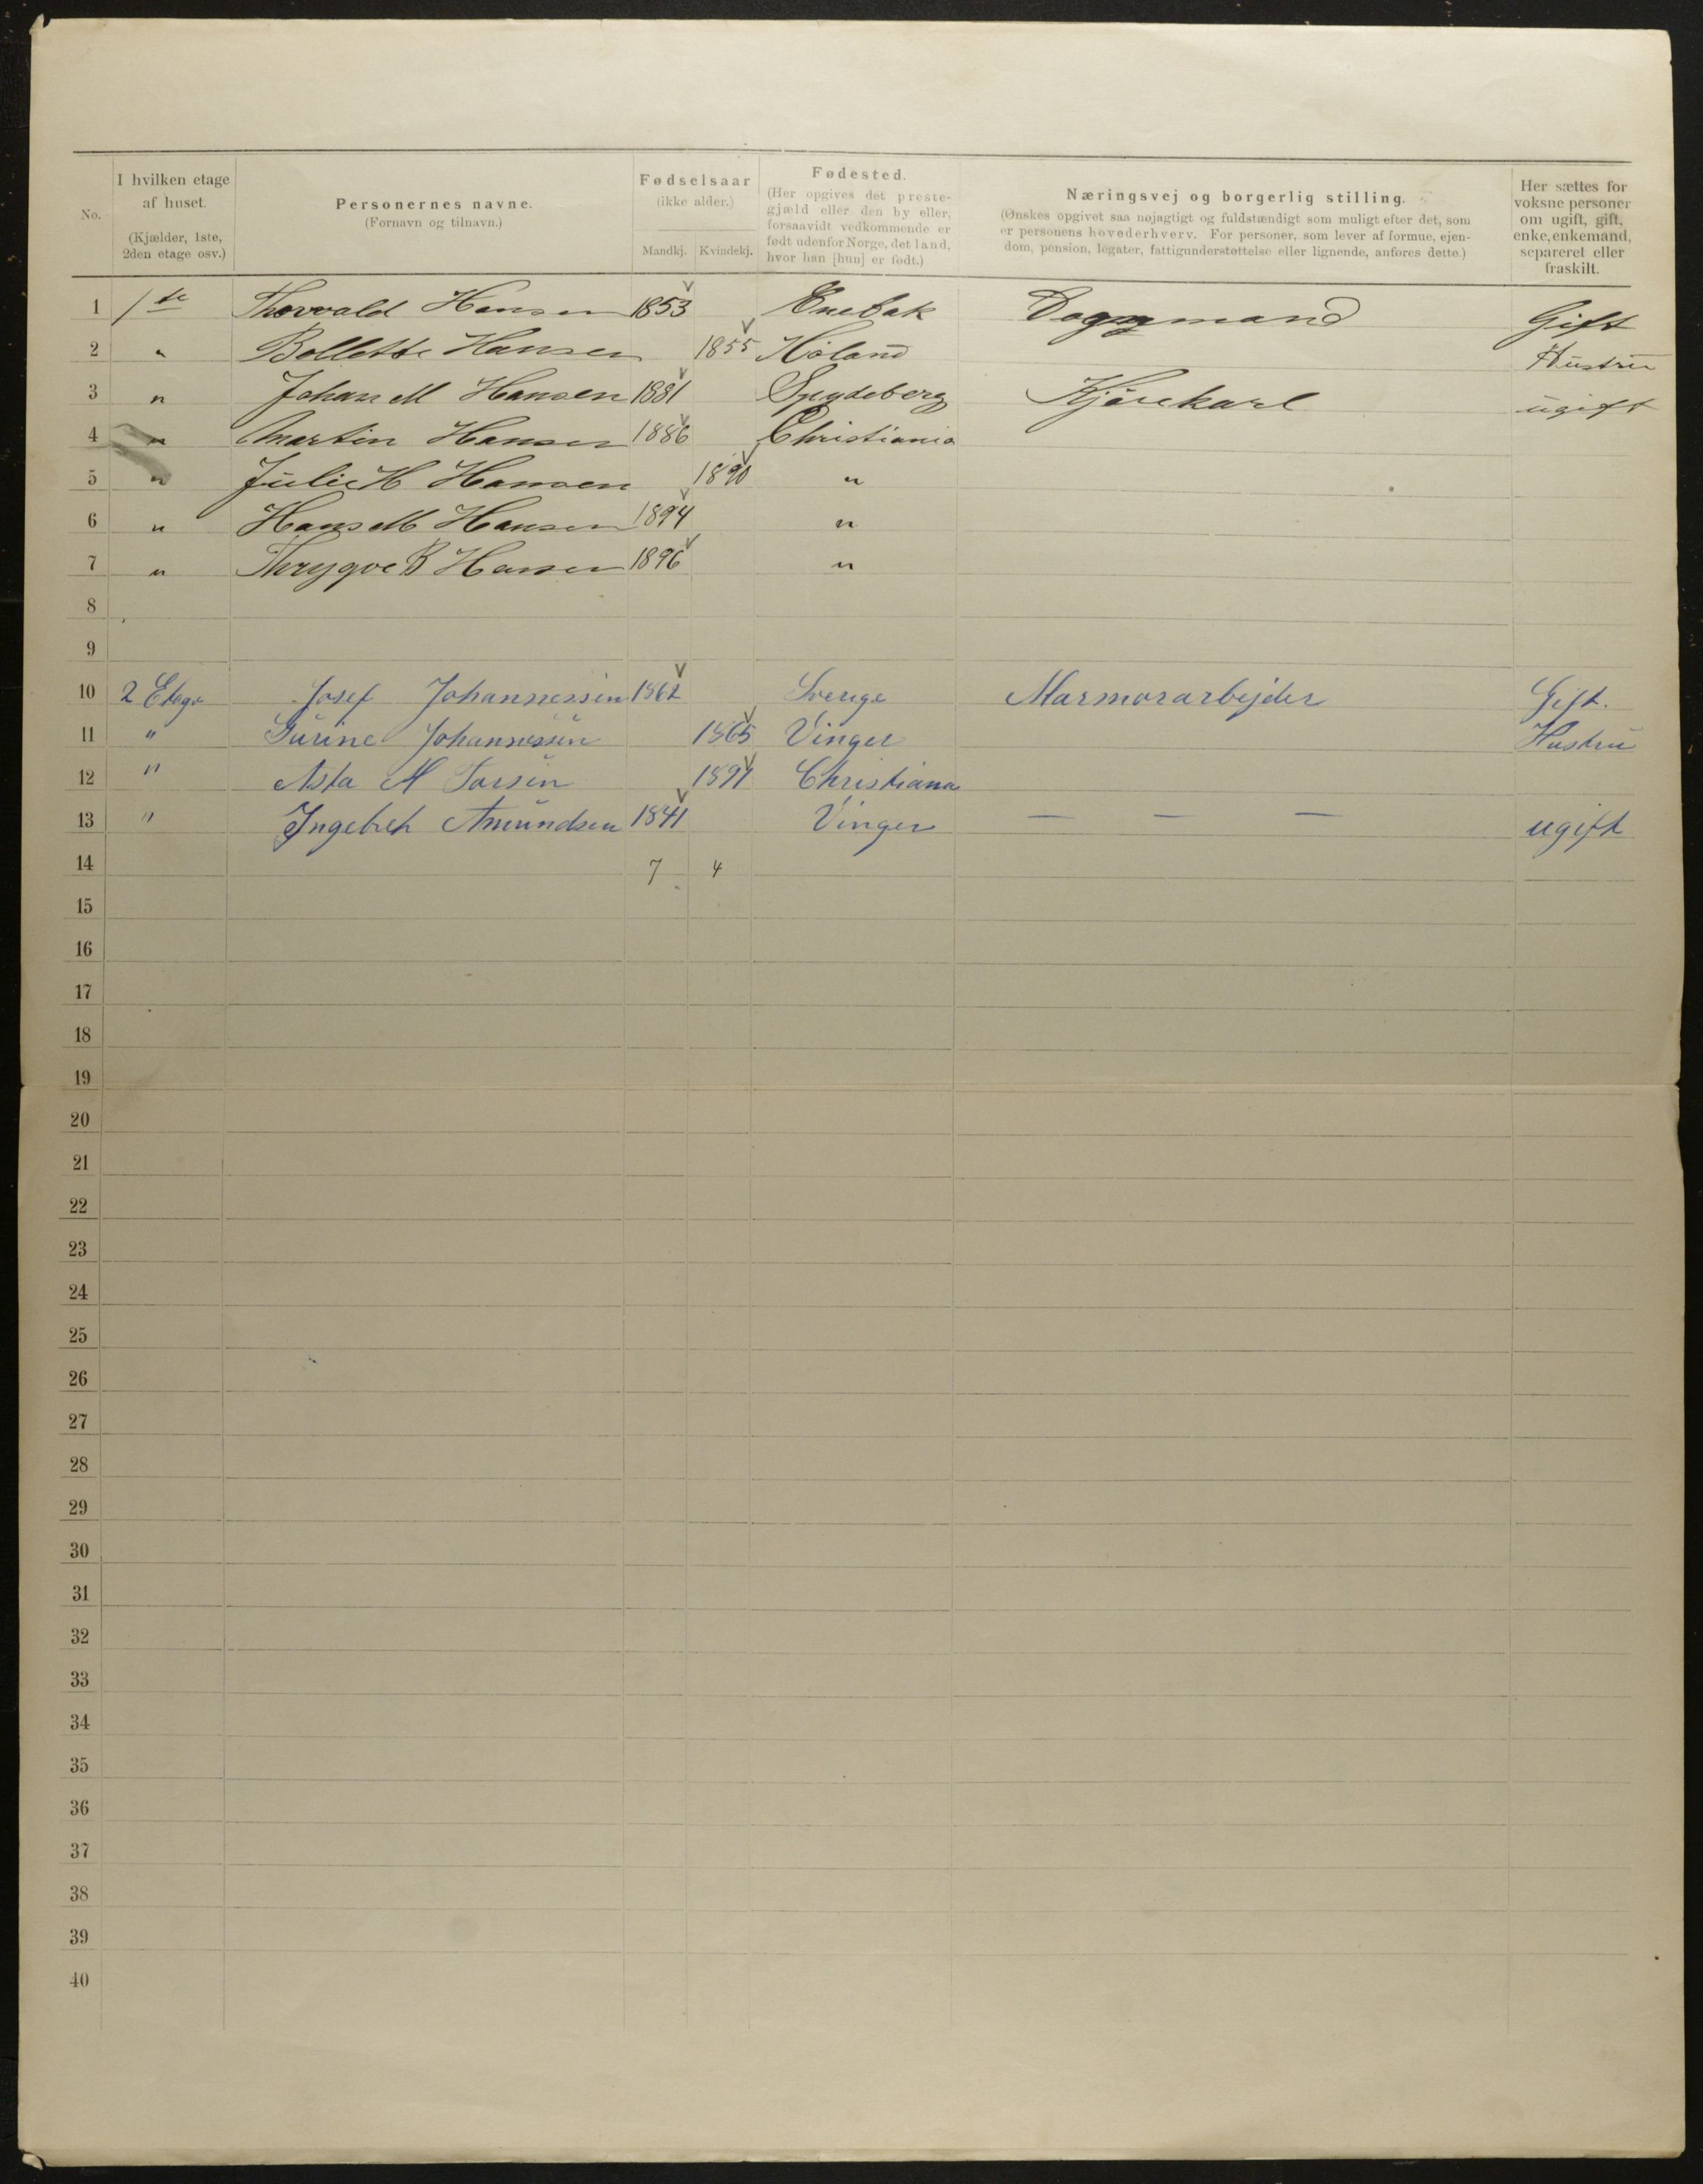 No.
I hvilken etage af huset.
(Kjælder, 1ste, 2den etage osv.)
Personernes navne.
(Fornavn og tilnavn.)
Fødselsaar
(ikke alder.)
Mandkj. Kvindekj.
Fødested.
(Her opgives det preste-
gjæld eller den by eller,
forsaavidt vedkommende er
født udenfor Norge, det land,
hvor han [hun] er født.)
Næringsvej og borgerlig stilling.
(Ønskes opgivet saa nøjagtigt og fuldstændigt som muligt efter det, som
er personens hovederhverv. For personer, som lever af formue, ejen-
dom, pension, legater, fattigunderstøttelse eller lignende, anføres dette.)
Her sættes for
voksne personer
om ugift, gift,
enke, enkemand,
separeret eller
fraskilt.
1 1ste Thorvald Hansen 1853 Enebak Gift
2 " Bollette Hansen 1855 Høland Hustru
3 " Johan M Hansen 1881 Spydeberg Kjørekarl ugift
4 " Martin Hansen 1886 Christiania
5 " Julie H Hansen 1890 "
6 " Hans M Hansen 1894 "
7 " Thrygve B Hansen 1896 "
8
9
10 2 Etage Josef Johannessen 1862 Sverige Marmorarbejder Gift.
11 " Gurine Johannessen 1865 Vinger Hustru
12 " Asta M 1891 Christiania
13 " Ingebret Amundsen 1841 Vinger — — — ugift
14 7 4
15
16
17
18
19
20
21
22
23
24
25
26
27
28
29
30
31
32
33
34
35
36
37
38
39
40